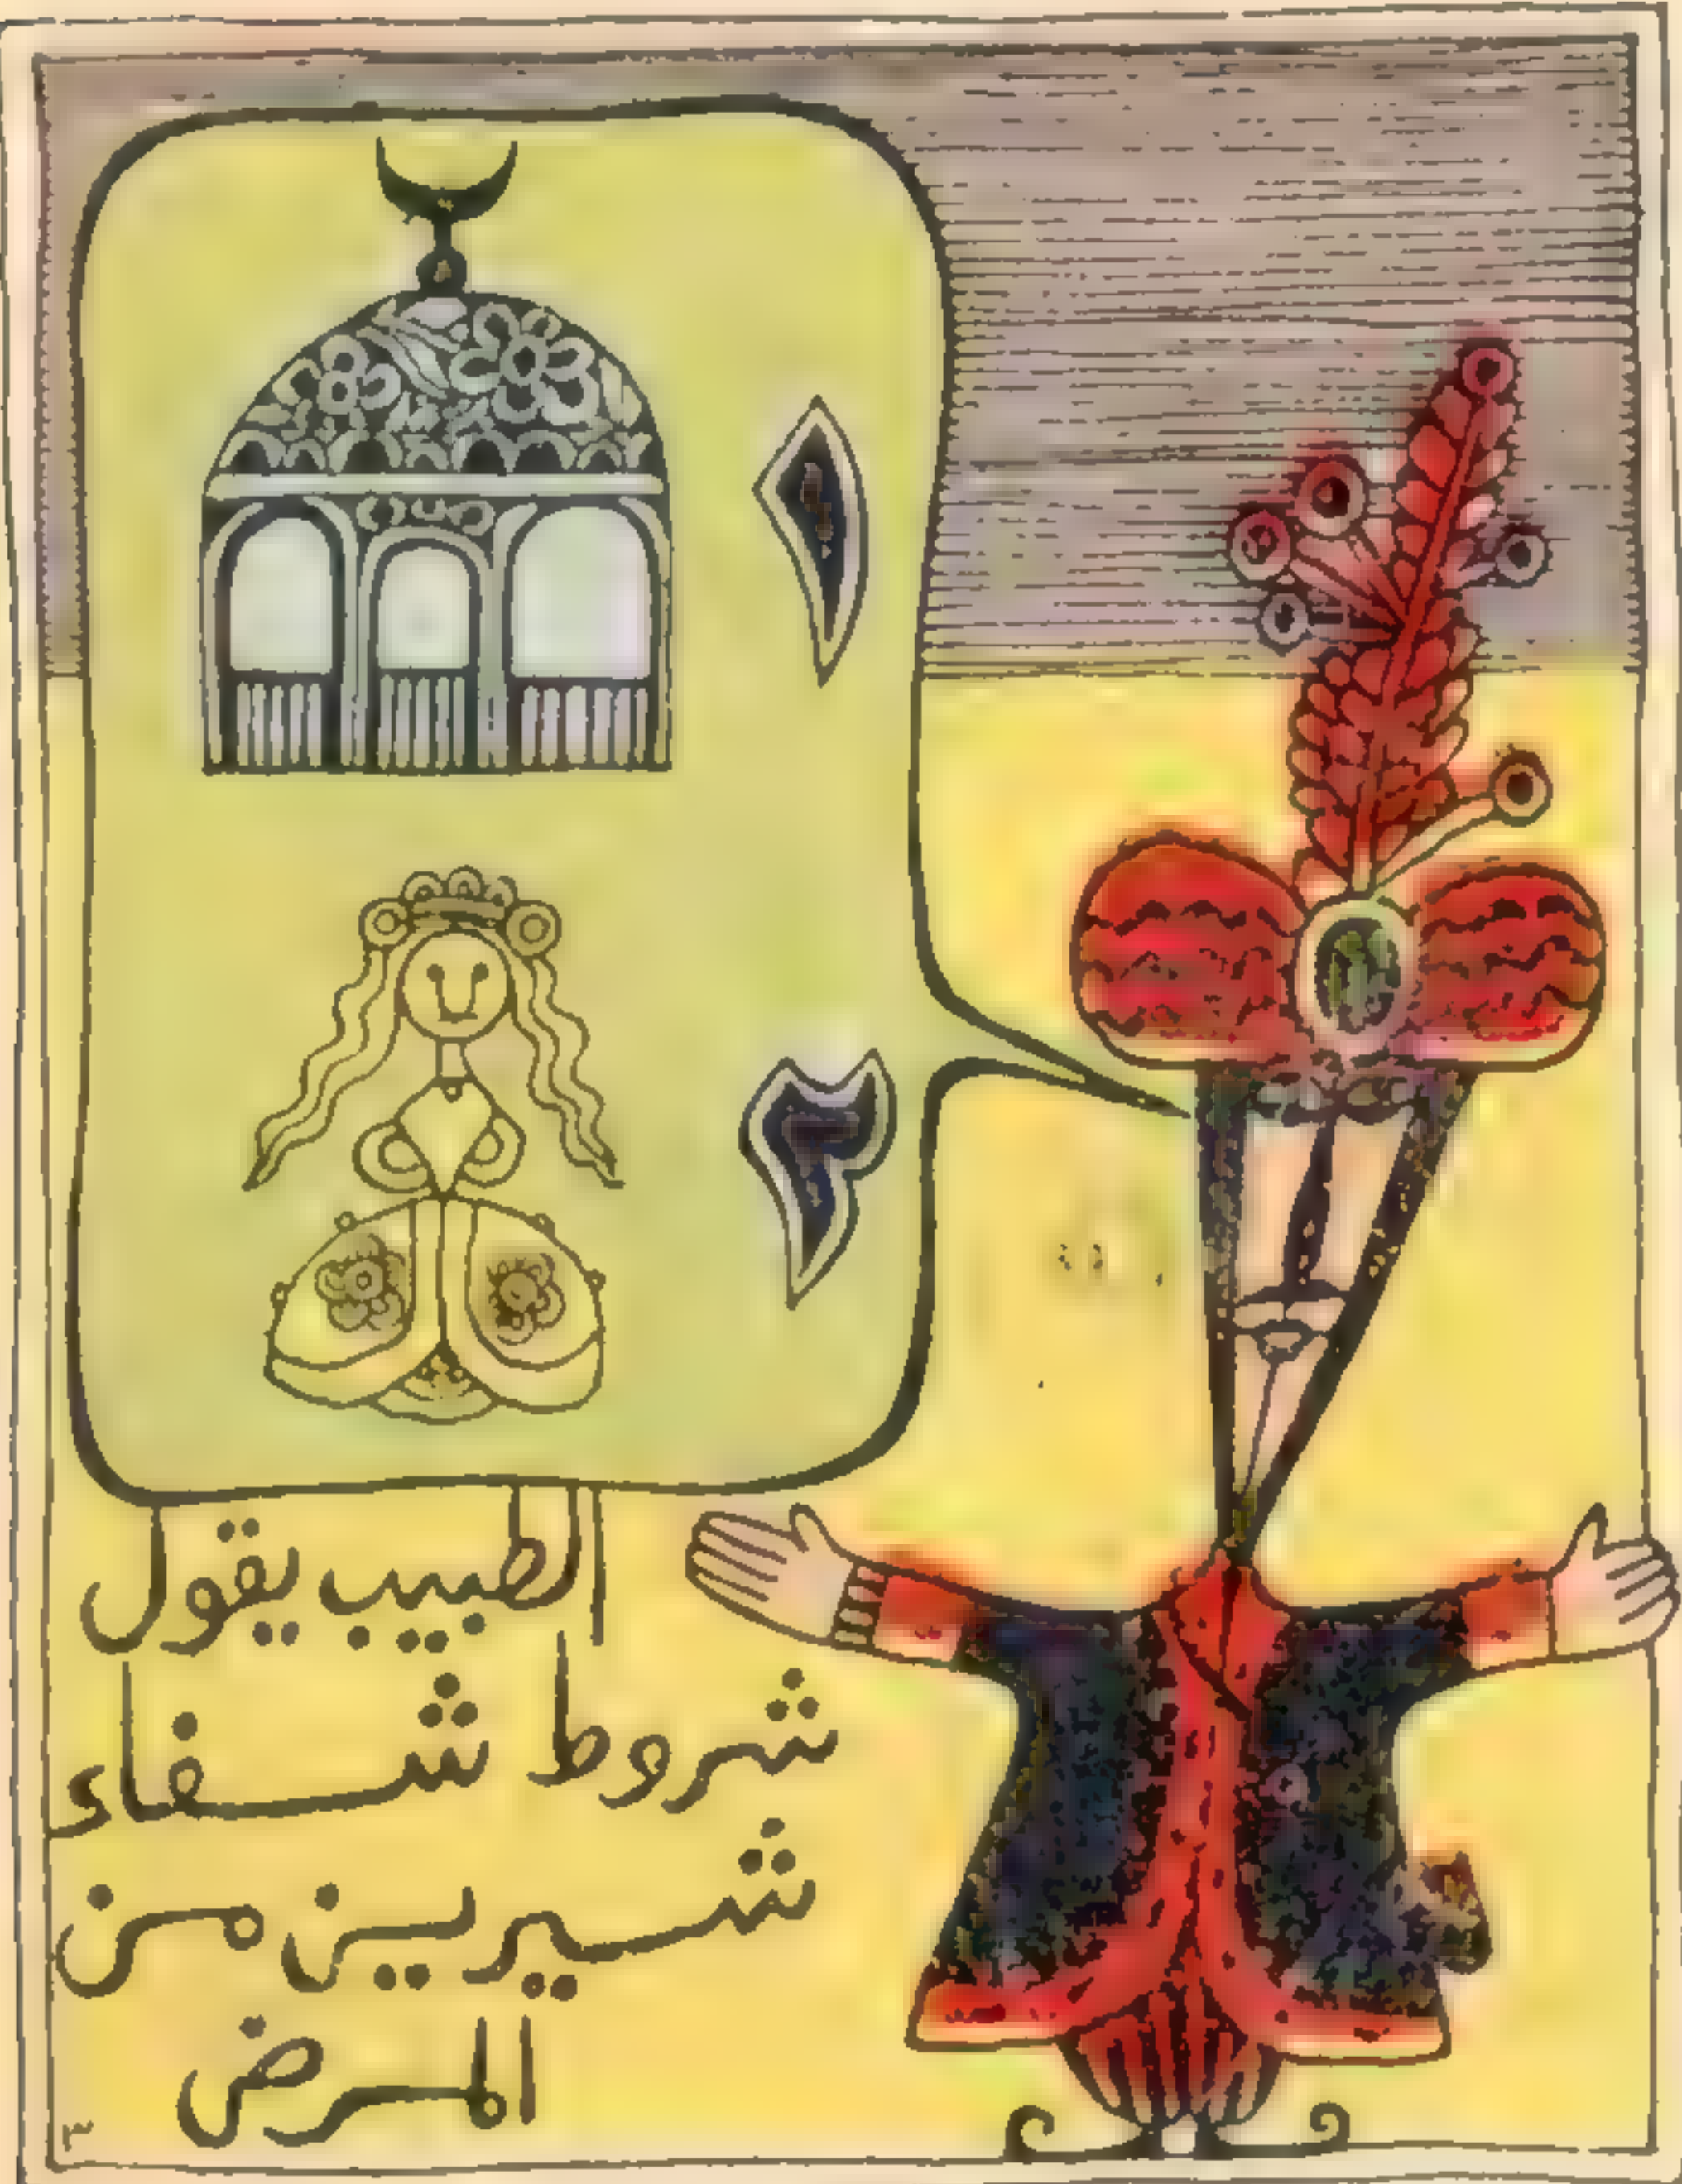 ١
٢
الطبيب يقول
شروط شفاء
شيرين من
المرض
٣